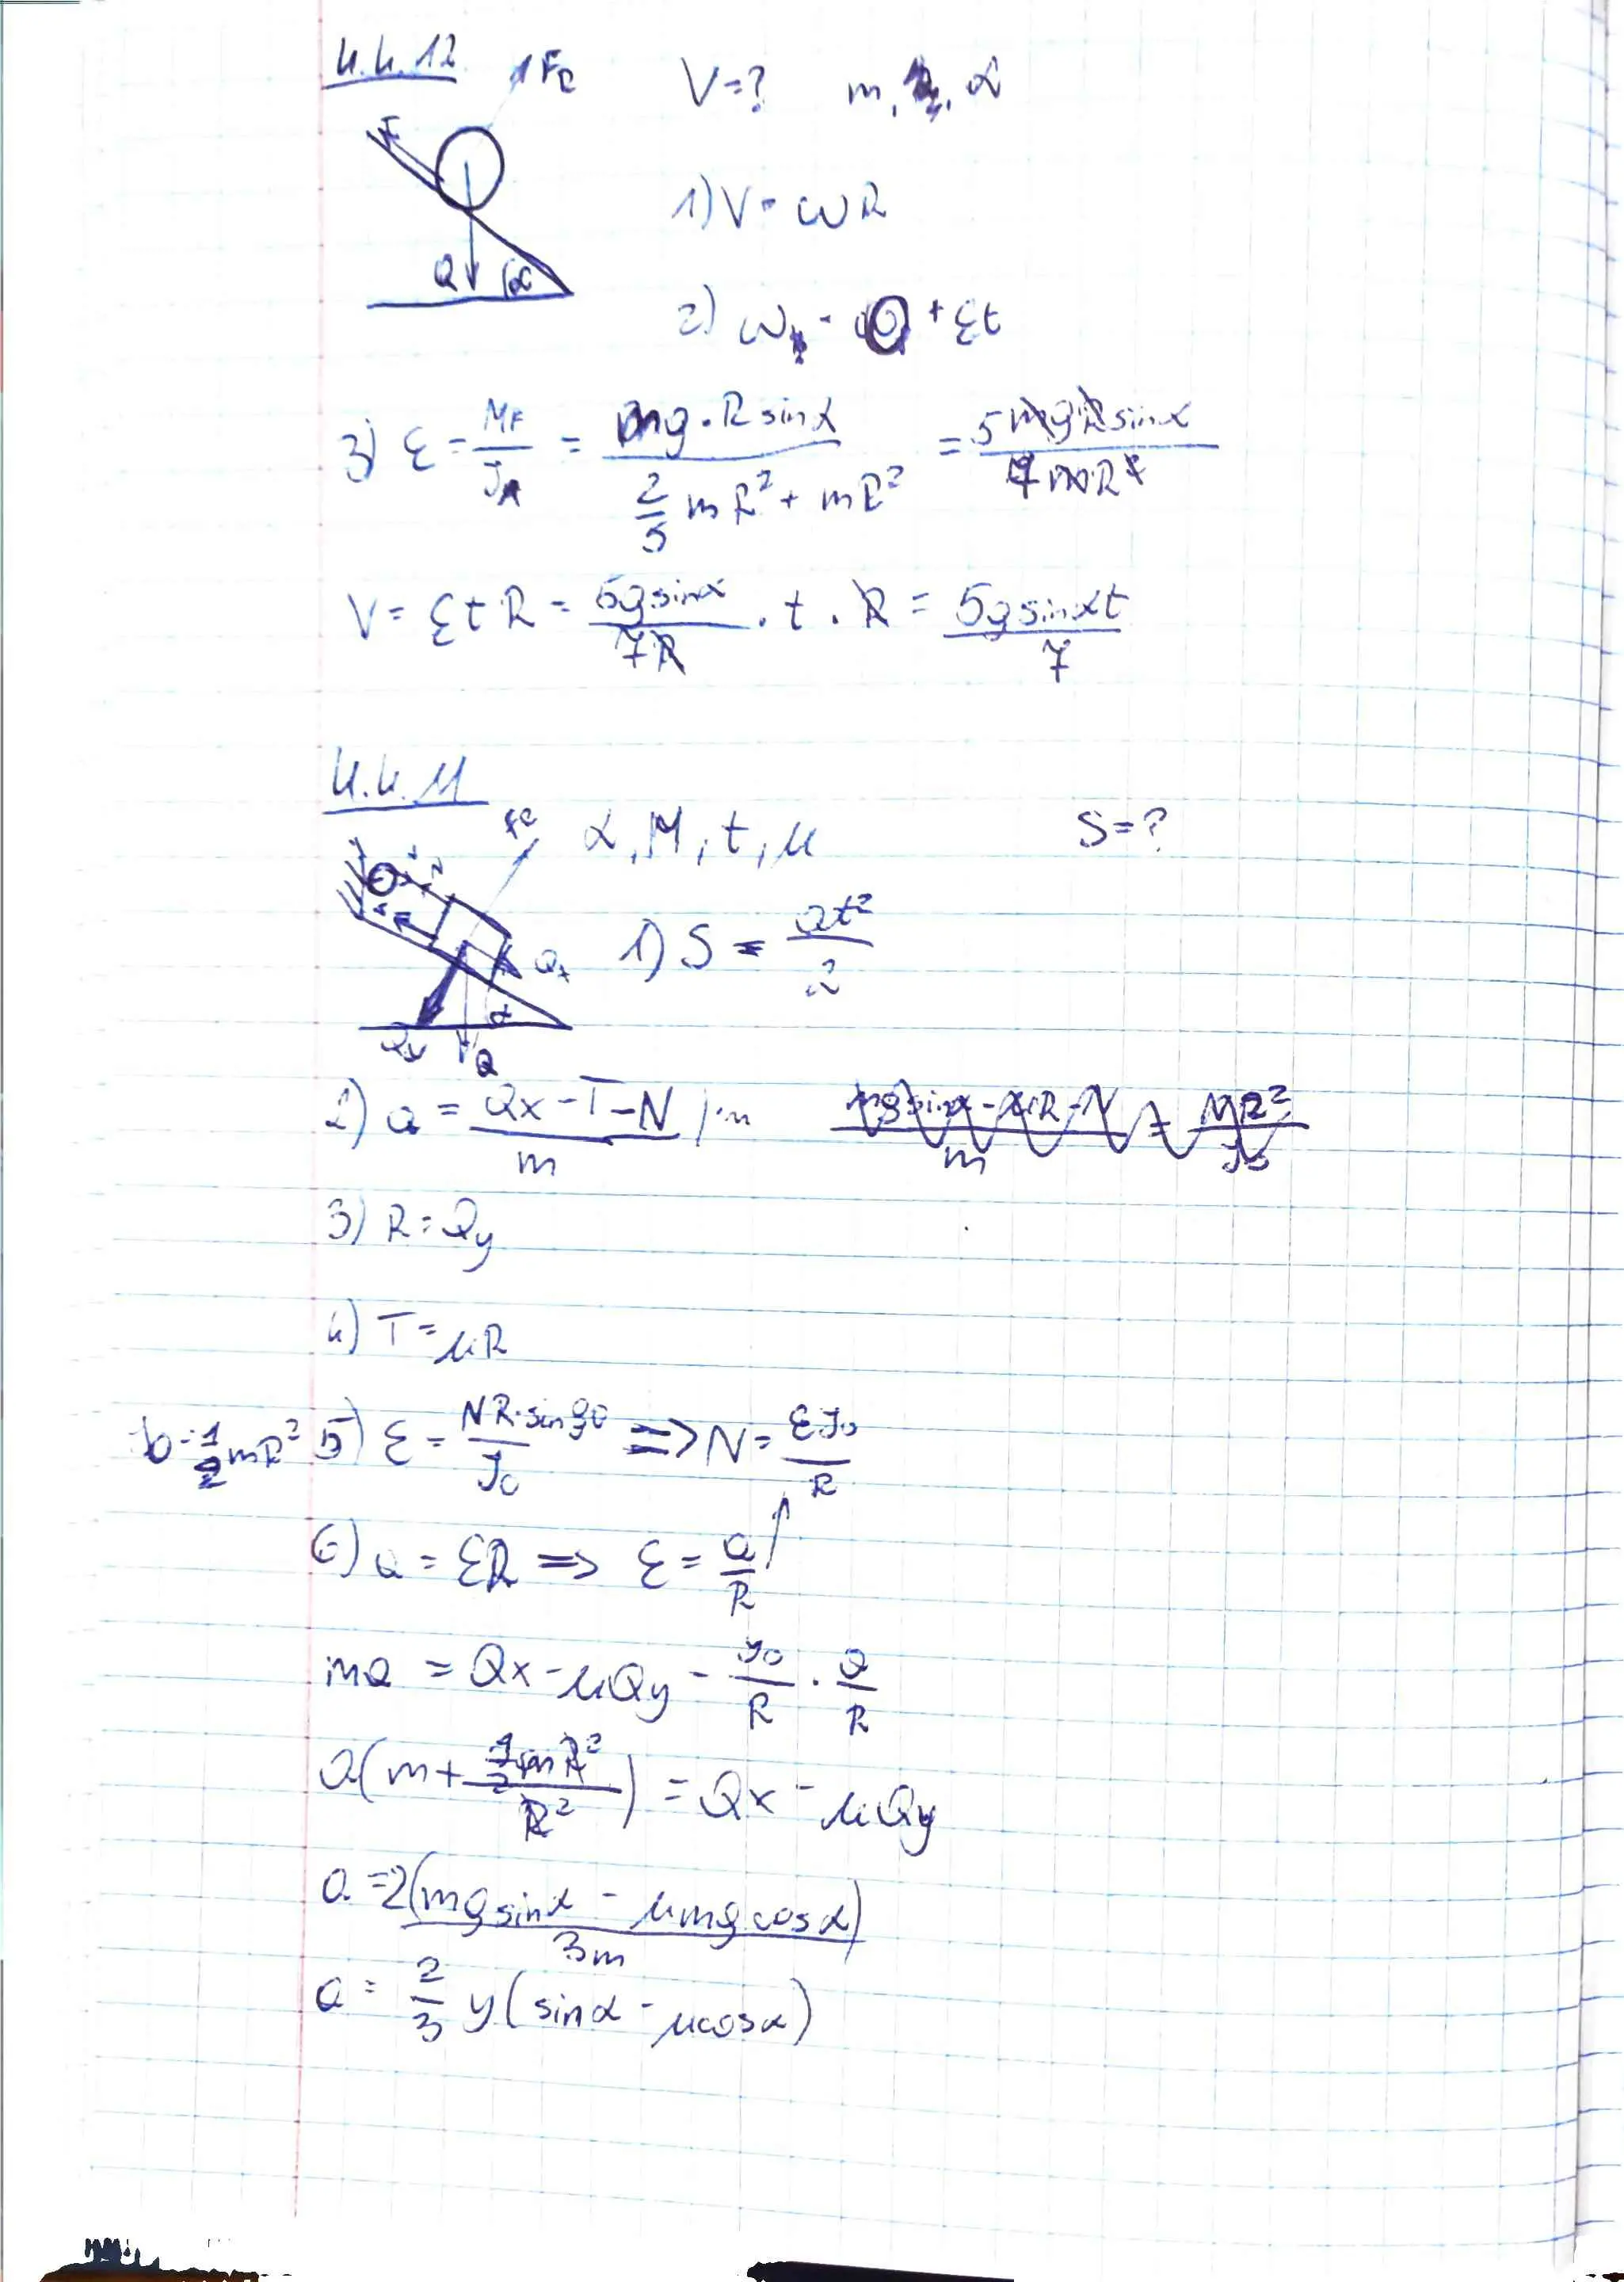 4.4.12 F_R V=? m, α
F
Q α
1) V = ωR
2) ω = 0 + εt
3) ε = M_F / J_A = mg·R sinα / (2/5 mR² + mR²) = 5mgR sinα / 7mR²
V = εtR = 5g sinα / 7R · t · R = 5g sinαt / 7
4.4.11
F_R α, M, t, μ S=?
N
Q_x 1) S = at² / 2
α
Q_y Q
2) a = (Qx - T - N) / m |·m
3) R = Qy
4) T = μR
J_0 = 1/2 mR² 5) ε = NR·sin90 / J_0 => N = εJ_0 / R
6) a = εR => ε = a / R
ma = Qx - μQy - J_0 / R · a / R
a(m + 1/2 mR² / R²) = Qx - μQy
a = 2(mg sinα - μmg cosα) / 3m
a = 2/3 g(sinα - μcosα)